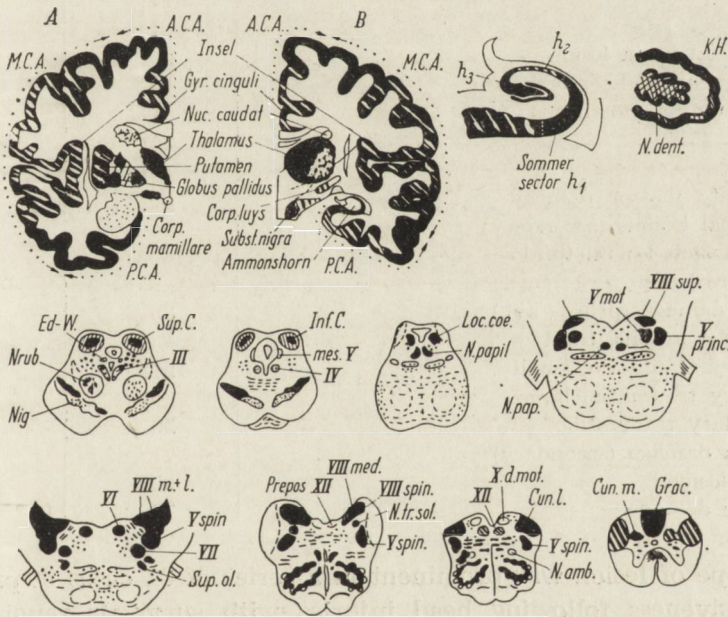 A
A.C.A.
A.C.A.
B
M.C.A.
Insel
M.C.A.
Gyr. cinguli
Nuc. caudat
Thalamus
Putamen
Globus pallidus
Corp. luys
Corp.
mamillare
Subst. nigra
Ammonshorn
P.C.A.
P.C.A.
h2
h3
Sommer
sector h1
K.H.
N.dent.
Ed-W.
Sup.C.
Nrub
III
Nig
Inf.C.
mes. V
IV
Loc.coe.
N.papil
V mot
VIII sup.
V
princ.
N.pap.
VI
VIII m.+l.
V spin
VII
Sup. ol.
Prepos
XII
VIII med.
VIII spin.
N.tr.sol.
V spin.
X.d.mot.
XII
Cun.l.
V spin.
N.amb.
Cun.m.
Grac.